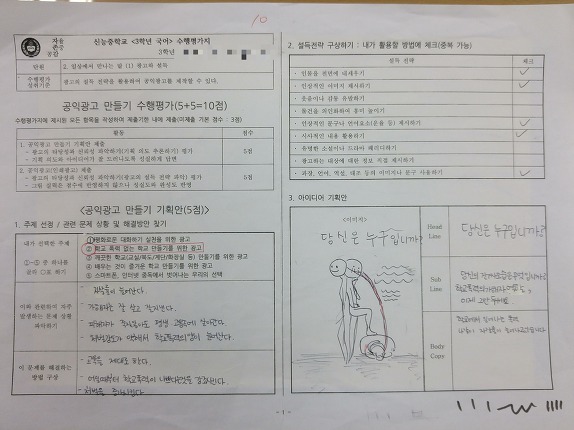 10
자율
존중
공감
신능중학교 <3학년 국어> 수행평가지
3학년
단원
2. 일상에서 만나는 말 (1) 광고와 설득
수행평가
성취기준
광고의 설득 전략을 활용하여 공익광고를 제작할 수 있다.
공익광고 만들기 수행평가(5+5=10점)
수행평가지에 제시된 모든 항목을 작성하여 제출기한 내에 제출(미제출 기본 점수 : 3점)
활동
점수
1. 공익광고 만들기 기획안 제출
- 광고의 타당성과 신뢰성 파악하기(기획 의도 추론하기) 평가
- 기획 의도와 아이디어가 잘 드러나도록 성실하게 답변
5점
2. 공익광고(인쇄광고) 제출
- 광고의 타당성과 신뢰성 파악하기(광고의 설득 전략 파악) 평가
- 그림 실력은 점수에 반영하지 않으나 성실도와 완성도 반영
5점
<공익광고 만들기 기획안(5점)>
1. 주제 선정 / 관련 문제 상황 및 해결방안 찾기
내가 선택한 주제
①~⑤ 중 하나를
골라 □로 하기
① 평화로운 대화하기 실천을 위한 광고
② 학교 폭력 없는 학교 만들기를 위한 광고
③ 깨끗한 학교(교실/복도/계단/화장실 등) 만들기를 위한 광고
④ 배우는 것이 즐거운 학교 만들기를 위한 광고
⑤ 스마트폰, 인터넷 중독에서 벗어나는 우리의 선택
이와 관련하여 자주
발생하는 문제 상황
파악하기
- 자살률이 늘어난다.
- 가해자는 잘 살고 잘지낸다.
- 피해자가
평생 고통에 살아간다.
- 처벌강도가 약해서 학교폭력의 벌이 늘어난다.
이 문제를 해결하는
방법 구상
- 교육을 제대로 한다.
- 어렸을때부터 학교폭력이 나쁘다는것을
- 처벌을
2. 설득전략 구상하기 : 내가 활용할 방법에 체크(중복 가능)
설득 전략
체크
· 인물을 전면에 내세우기
· 인상적인 이미지 제시하기
· 웃음이나 감동 유발하기
· 물건을 의인화하여 흥미 높이기
· 인상적인 문구나 언어요소(운율 등) 제시하기
· 시사적인 내용 활용하기
· 유명한 소설이나 드라마 패러디하기
· 광고하는 대상에 대한 정보 직접 제시하기
· 과장, 언어, 역설, 대조 등의 이미지나 문구 사용하기
3. 아이디어 기획안
<이미지>
당신은 누구입니까?
Head
Line
당신은 누구입니까?
Sub
Line
이제 그만
Body
Copy
학교에서 일어나는 폭력
- 1 -